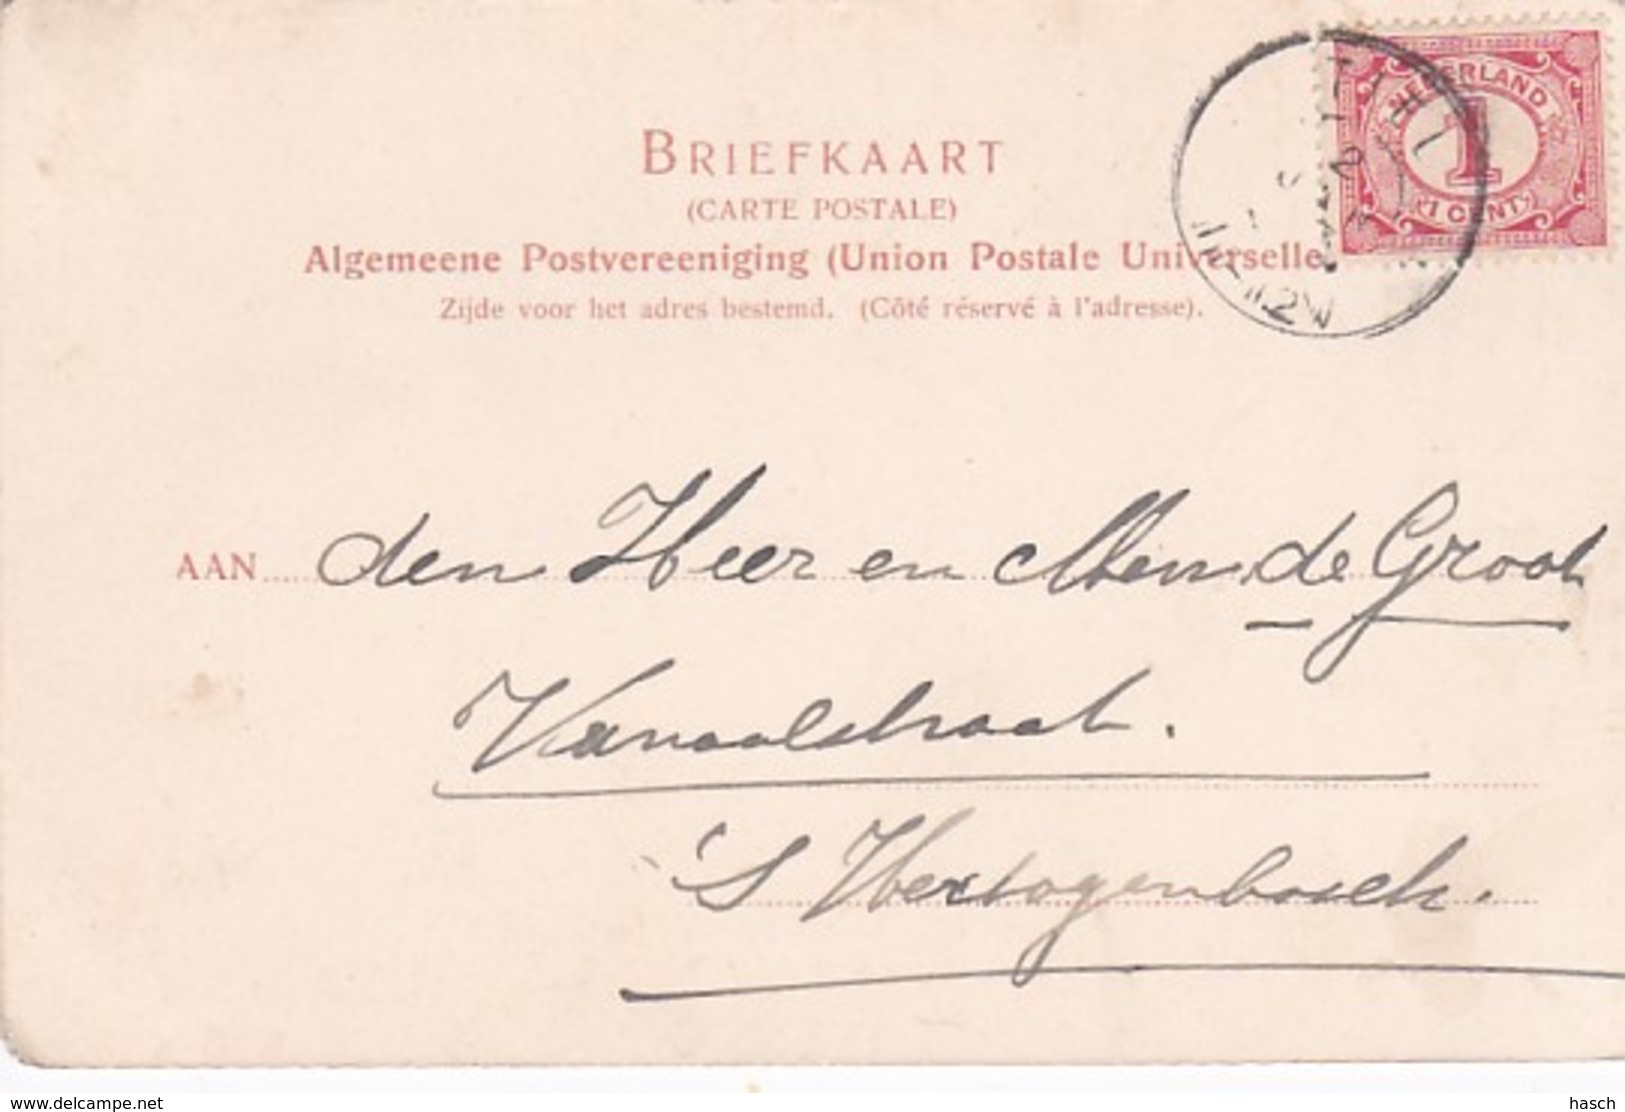 BRIEFKAART
(CARTE POSTALE)
Algemeene Postvereeniging (Union Postale Universelle
Zijde voor het adres bestemd. (Côté réservé à l'adresse).
NEDERLAND
1
1 CENT
AAN den Heer en Mevr de Groot
's Hertogenbosch.
www.delcampe.net
hasch